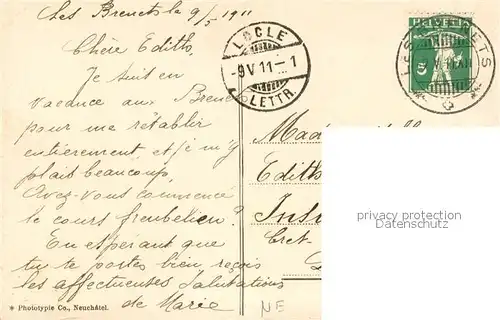 Les Brenets le 9/5 1911
Chère Edith,
Je suis en
vacance aux Brenets
pour me rétablir
entièrement et je m'y
plais beaucoup.
Avez-vous commencé
le cours freubelien?
En espérant que
tu te portes bien reçois
les affectueuses salutations
de Marie
* Phototypie Co., Neuchâtel.
NE
LOCLE
-9 V 11-1
LETTR.
HELVETIA
5
LES BRENETS
Mad
Edith
Insti
Cret-
privacy protection
Datenschutz